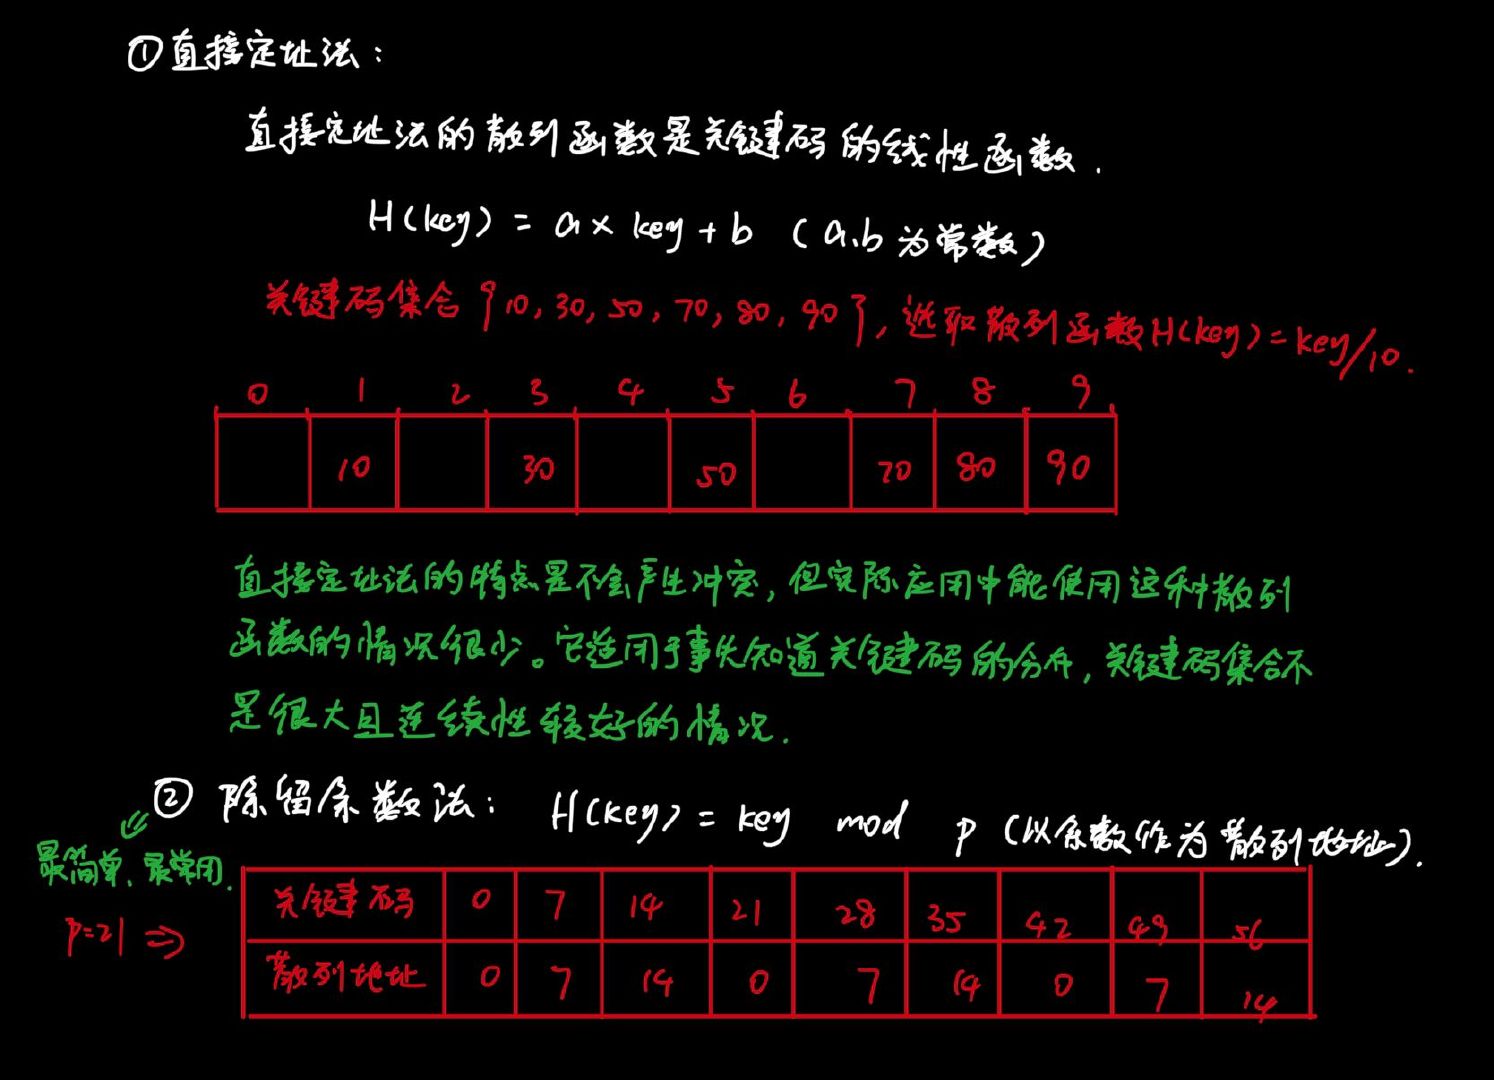 ①直接定址法：
直接定址法的散列函数是关键码的线性函数.
H(key) = a × key + b (a.b为常数)
关键码集合{10, 30, 50, 70, 80, 90}, 选取散列函数H(key)=key/10.
0 1 2 3 4 5 6 7 8 9
10 30 50 70 80 90
直接定址法的特点是不会产生冲突, 但实际应用中能使用这种散列
函数的情况很少。它适用于事先知道关键码的分布, 关键码集合不
是很大且连续性较好的情况.
② 除留余数法: H(key) = key mod p (以余数作为散列地址).
最简单、最常用.
P=21 ⇒
关键码 0 7 14 21 28 35 42 49 56
散列地址 0 7 14 0 7 14 0 7 14